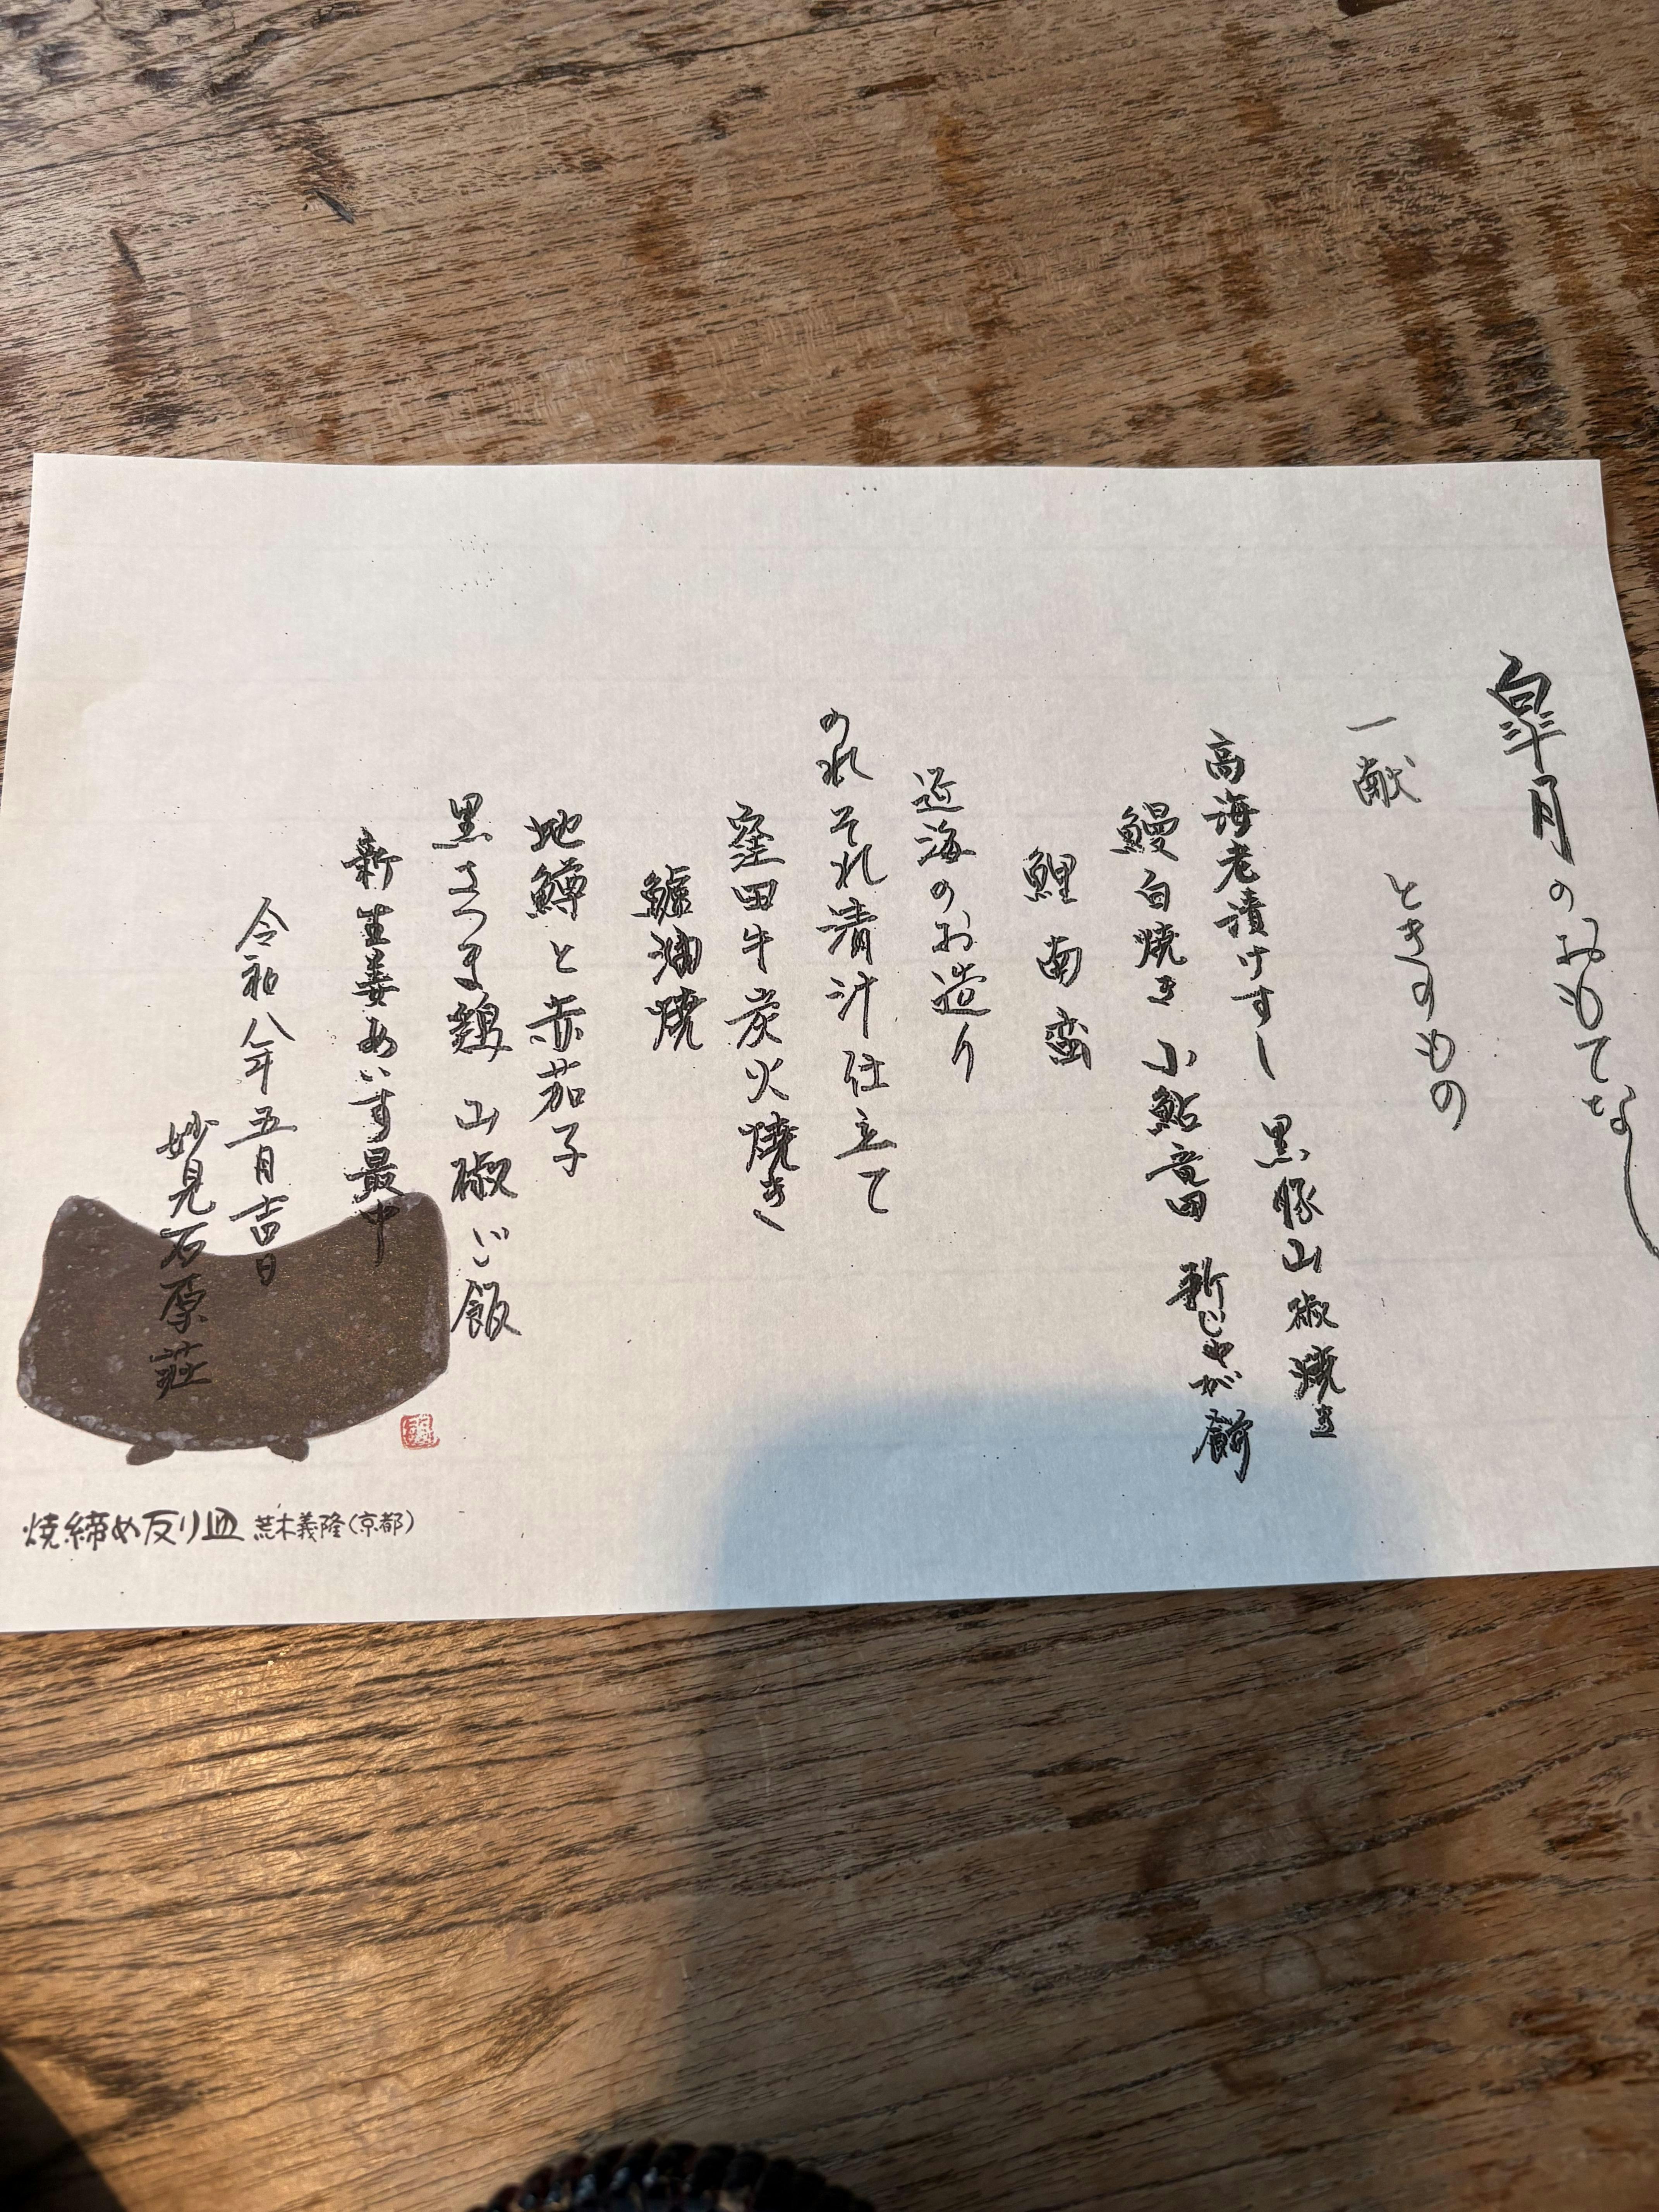 皐月のおもてなし
一献 ときすもの
高海老漬けすし 黒豚山椒焼き
鰻白焼き 小鮎竜田 新じゃが餅
鯉南蛮
近海のお造り
のれそれ清汁仕立て
窪田牛炭火焼き
鱸油焼
地鱒と赤茄子
黒さつま鶏 山椒ご飯
新生姜あいす最中
令和八年五月吉日
妙見石原荘
焼締め反り皿 荒木義隆(京都)